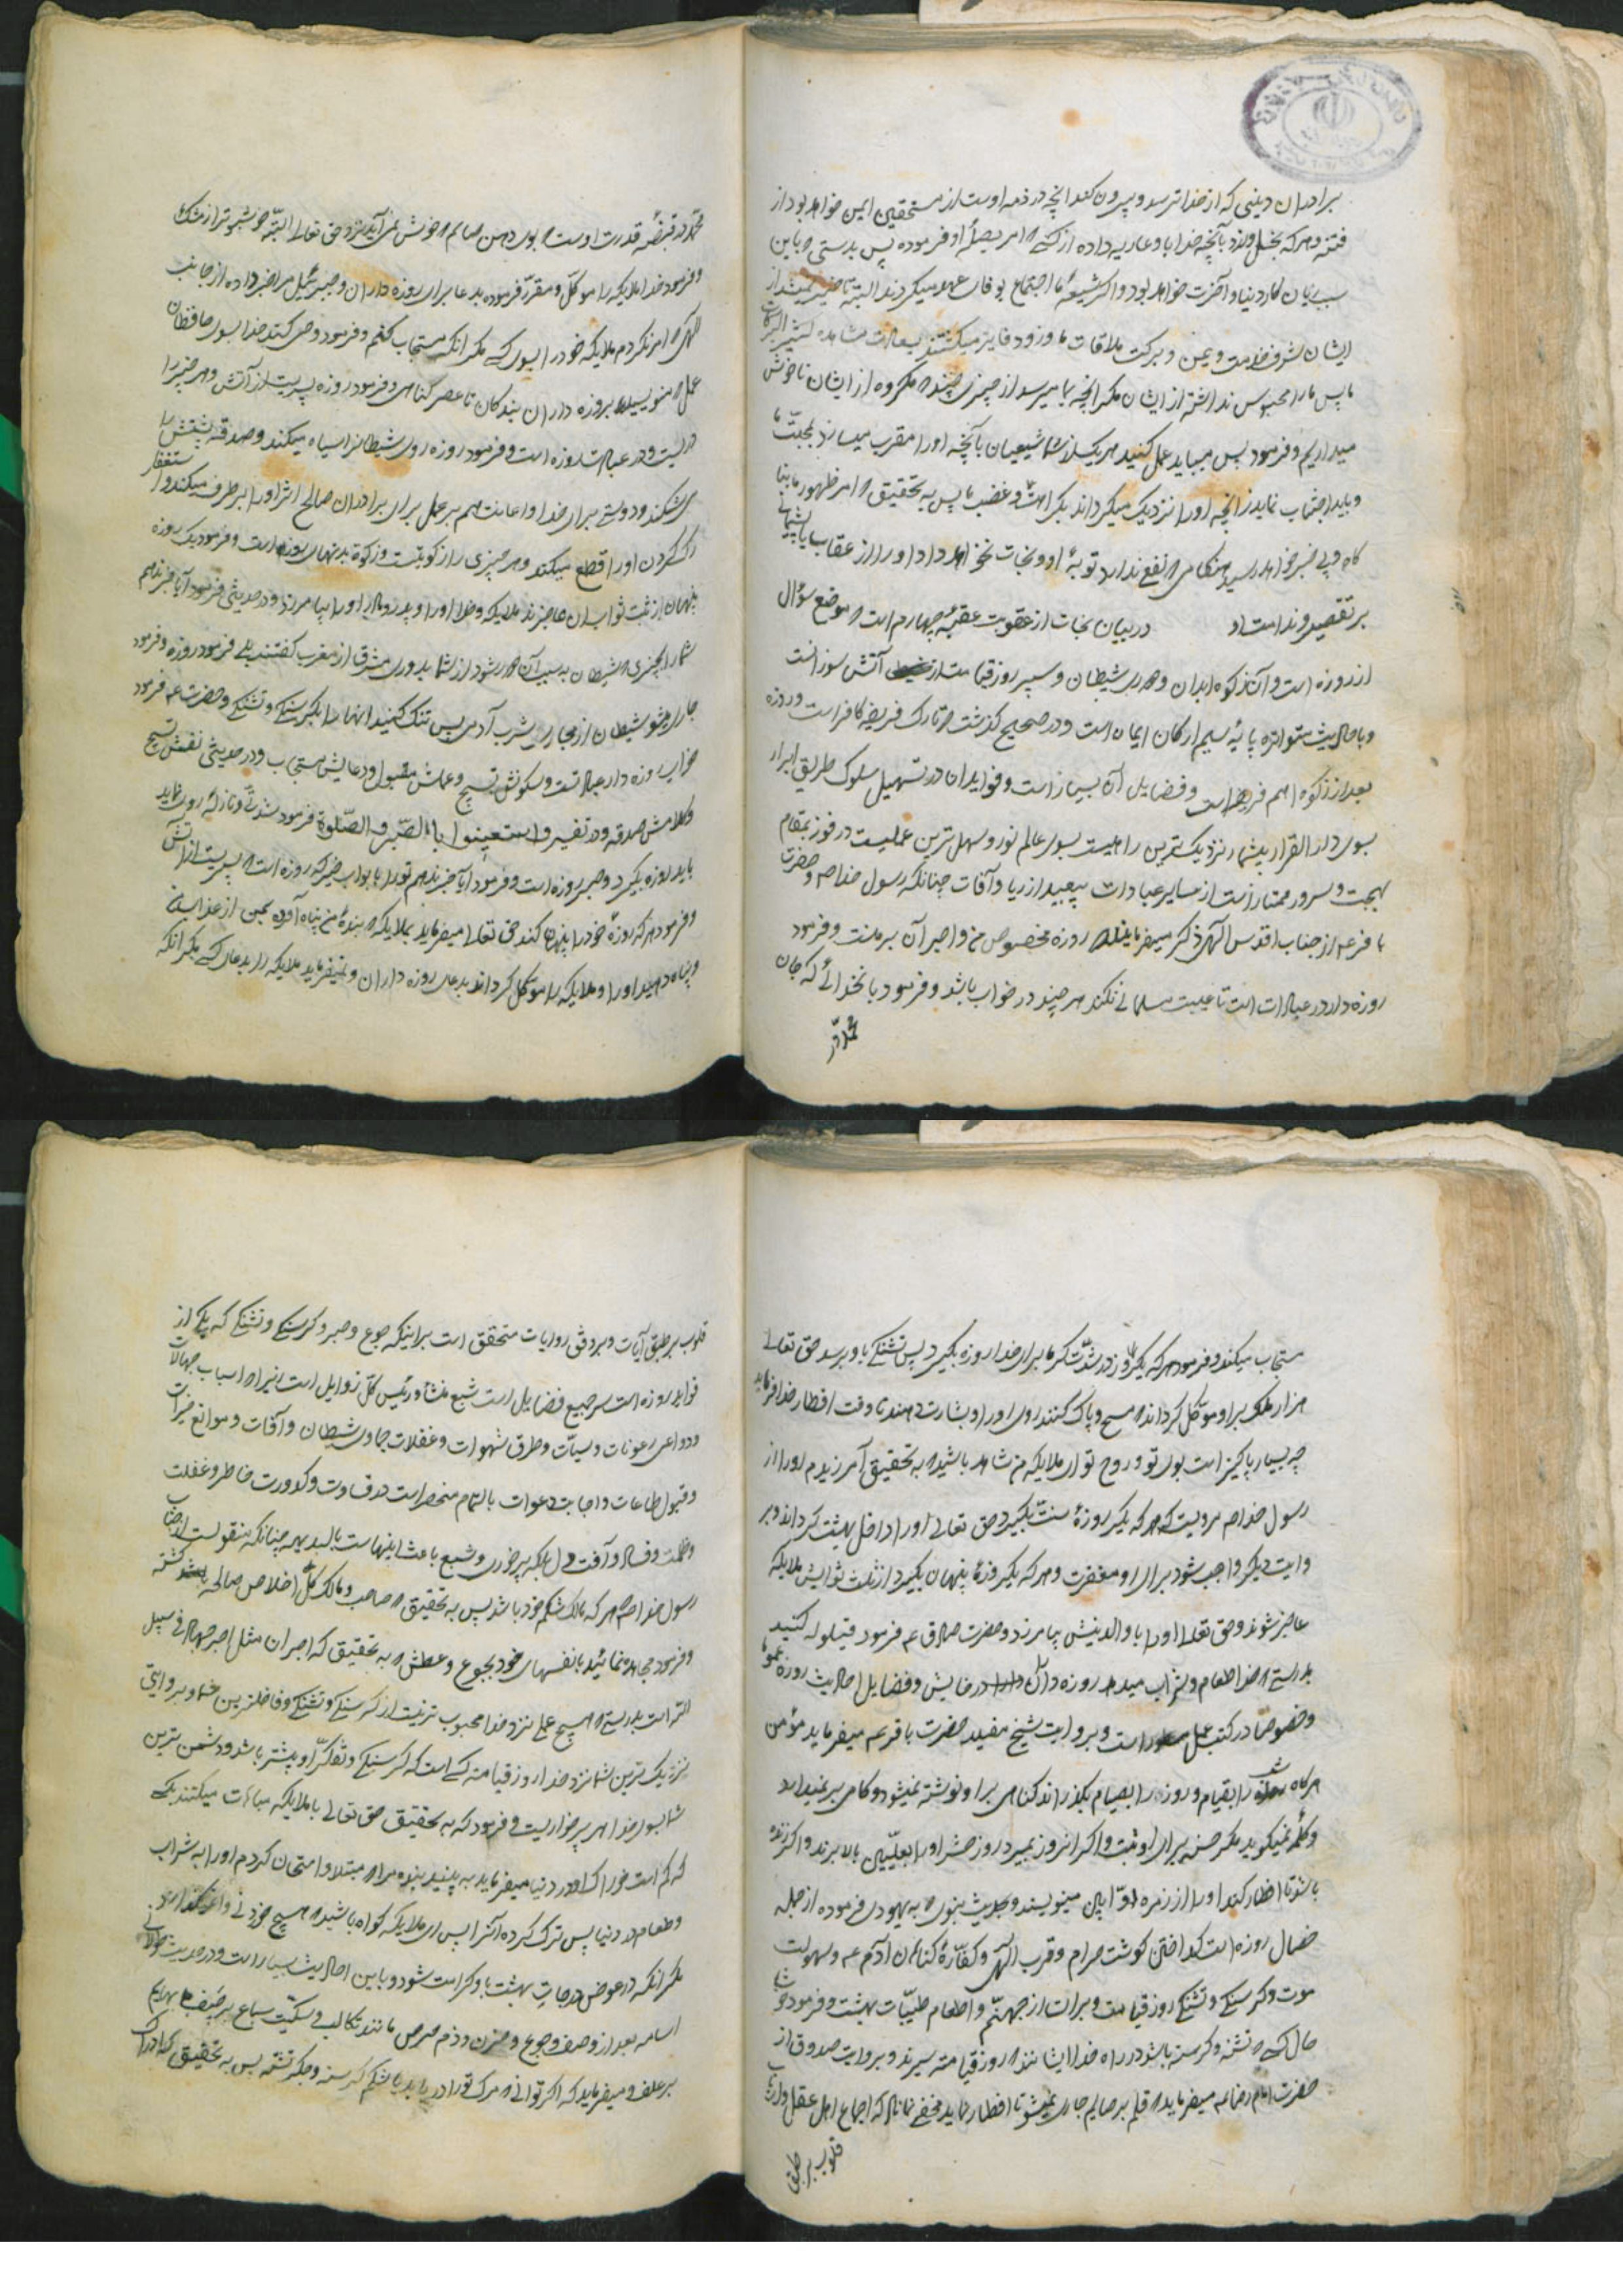 برادران دینی که از خدا ترسد و بیرون کند آنچه در ذمه اوست از مستحقین ایمن خواهد بود از
فتنه و هر که بخل ورزد بآنچه خدا باو عاریه داده از کسی که امر بصلهٔ او فرموده پس بدرستی که باین
سبب زیان کار دنیا و آخرت خواهد بود و اگر شیعهٔ ما اجتماع بوفاء عهد میکردند البته تاخیر نمیشد از
ایشان شرف خدمت و یمن و برکت ملاقات ما و زود فایز میکشتند بسعادت مشاهده کثیر البرکات
ما پس ما را محبوس نداشته از ایشان مکر آنچه بما میرسد از چیزی چند که مکروه از ایشان ناخوش
میداریم و فرمود پس میباید عمل کنید هر یک از شما شیعیان بآنچه او را مقرب میسازد بمحبت ما
و باید اجتناب نماید از آنچه او را نزدیک میکرداند بکراهت و غضب ما پس به تحقیق که امر ظهور ما بنا
کاه و بی خبر خواهد رسید هنکامی که نفع ندارد توبهٔ او و نجات نخواهد داد او را از عقاب ما پشیمانی
بر تقصیر و ندامت او در بیان نجات از عقوبت عقبهٔ چهارم است که موضع سؤال
از روزه است و آن زکوة ابدان و مدحر شیطان و سپر روز قیامت از آتش سوزانست
و باحادیث متواتره پایهٔ سیم ارکان ایمان است و در صحیح کذشت که تارک فریضه کافر است و روزه
بعد از زکوة اهم فرایض است و فضایل آن بسیار است و فواید آن در تسهیل سلوک طریق ابرار
بسوی دار القرار بیشمار نزدیک‌ترین راهیست بسوی عالم نور و سهل‌ترین عملیست در فوز بمقام
بهجت و سرور ممتاز است از سایر عبادات ببعید از ریا و آفات چنانکه رسول خدا ص و حضرت
باقر ع از جناب اقدس الهی ذکر میفرمایند که روزه مخصوص من و اجر آن بر منست و فرمود
روزه‌دار در عبادات است تا غیبت مسلمانی نکند هر چند در خواب باشد و فرمود بآنخدائی که جان
محمد در
محمد در قبضهٔ قدرت اوست که بوی دهن صایم که خوش نمی‌آید نزد حق تعالی البته خوشبوتر از مشک
و فرمود خدا ملایکه را موکل و مقرر فرموده بدعا برای روزه داران و جبرئیل مرا خبر داده از جانب
الهی که امر نکردم ملایکه خود را بسوی کسی مکر آنکه مستجاب کنم و فرمود وحی کند خدا بسوی حافظان
عمل که ننویسید بروزه داران بندکان تا عصر کناهی و فرمود روزه سپریست از آتش و هر چیز را
دریست و در عبادت روزه است و فرمود روزه روی شیطان را سیاه میکند و صدقه پشتش را
می شکند و دوستی برای خدا و اعانت هم بر عمل برای برادران صالح اثر او را بر طرف میکند و استغفار
رک کردن او را قطع میکند و هر چیزی را زکوتیست و زکوة بدنهای روزه است و فرمود یک روزه
پنهان از ثبت ثواب آن عاجزند ملایکه و خدا او را و پدر و مادر او را بیامرزد و در حدیثی فرمود آیا خبر ندهم
شما را بچیزی که شیطان بسبب آن دور شود از شما بدوری مشرق از مغرب کفتند بلی فرمود روزه و فرمود
جاری میشود شیطان از مجاری شرب آدمی پس تنک کنید آنها را بکرسنکی و تشنکی و حضرت ع فرمود
خواب روزه دار عبادتست و سکوتش تسبیح و عملش مقبول و دعایش مستجاب و در حدیثی نفسش تسبیح
و کلامش صدقه و در تفسیر واستعینوا بالصبر و الصلوة فرمود شدتی و نازلهٔ روی نماید
باید روزه بکیرد و صبر روزه است و فرمود آیا خبر ندهم تو را بابواب خیر که روزه است که سپریست از آتش
و فرمود هر که روزهٔ خود را پنهان کند حق تعالی میفرماید بملایکه که بندهٔ من پناه آورده بمن از عذاب من
پناه دهید او را و ملایکه را موکل کرداند بدعای روزه داران و نمیفرماید ملایکه را بدعای کسی مکر آنکه
مستجاب میکند و فرمود هر که یکروز در شدت کرما برای خدا روزه بکیرد پس تشنکی باو برسد حق تعالی
هزار ملک بر او موکل کرداند که مسح و پاک کنند روی او را و بشارت دهند تا وقت افطار خدا فرماید
چه بسیار پاکیزه است بوی تو و روح تو ای ملایکه من شاهد باشید که به تحقیق آمرزیدم او را از
رسول خدا ص مرویست که هر که یکروز روزهٔ سنت بکیرد حق تعالی او را داخل بهشت کرداند و بر
وایت دیکر واجب شود برای او مغفرت و هر که یکروز روزهٔ پنهان بکیرد از ثبت ثوابش ملایکه
عاجز شوند و حق تعالی او را با والدینش بیامرزد و حضرت صادق ع فرمود قیلوله کنید
بدرستی که خدا طعام و شراب میدهد روزه دار را در خوابش و فضایل احادیث روزه عموما
و خصوصا در کتب عمل مسطور است و بروایت شیخ مفید حضرت باقر ع میفرماید مؤمن
هرکاه شب را بقیام و روز را بصیام بکذراند کناهی بر او نوشته نمیشود و کامی بر نمیدارد
و کلمه نمیکوید مکر حسنه برای او ثبت و اگر آنروز بمیرد روز حشر او را بعلیین بالا برند و اگر زنده
باشد تا افطار کند او را از زمره اوابین مینویسند و بحدیث نبوی که به یهودی فرموده از جمله
خصال روزه است کداختن کوشت حرام و قرب الهی و کفارهٔ کناهان آدم ع و سهولت
موت و کرسنکی و تشنکی روز قیامت و برات از جهنم و اطعام طیبات بهشت و فرمود خوشا
حال کسی که تشنه و کرسنه باشد در راه خدا ایشانند که روز قیامت سیرند و بروایت صدوق از
حضرت امام رضا ع میفرماید که قلم بر صایم جاری نمیشود تا افطار نماید مخفی نماناد که اجماع اهل عقل و ارباب
قلوب بر طبق
قلوب بر طبق آیات و بر وفق روایات متحقق است بر اینکه جوع و صبر و کرسنکی و تشنکی که یکی از
فواید روزه است سر جمیع فضایل است شبع منشاء و رئیس کل رذایل است زیرا که اسباب جهالات
و دواعی رعونات و سیئات و طرق شهوات و غفلات جماوی شیطان و آفات و موانع خیرات
و قبول طاعات و اجابت دعوات بالتمام منحصر است در قساوت و کدورت خاطر و غفلت
و ظلمت و فساد و آفت دل بلکه پرخوری و شبع باعث اینهاست بالبدیهه چنانکه منقولست از جناب
رسول خدا ص هر که مالک شکم خود باشد پس به تحقیق که صاحب و مالک کل اخلاص صالحه کشته
و فرمود مجاهده نمائید با نفسهای خود بجوع و عطش که به تحقیق که اجر آن مثل اجر جهاد فی سبیل
الله است بدرستی که هیچ عملی نزد خدا محبوب‌تر نیست از کرسنکی و تشنکی و فاضلترین شما و بروایتی
نزدیک ترین شما نزد خدا روز قیامت کسی است که کرسنکی و تفکر او بیشتر باشد و دشمن ترین
شما بسوی خدا هر پرخواریست و فرمود که به تحقیق حق تعالی با ملایکه مباهات میکند بکسی
که کم است خوراک او در دنیا میفرماید به بینید بنده مرا که مبتلا و امتحان کردم او را به شراب
و طعام در دنیا پس ترک کرده آنرا پس ای ملایکه کواه باشید که هیچ خوردنی وا نمیکذارد
مکر آنکه در عوض درجات بهشت باو کرامت شود و باین احادیث بسیار است و در حدیث طولانی
اسامه بعد از وصف و جوع و حزن و ذم حرص مانند تکالب سکیت سباع بر جیفه بهایم
بر علف و میفرماید که اکر توانی که مرک تو را دریابد با شکم کرسنه و جکر تشنه پس به تحقیق که ادراک